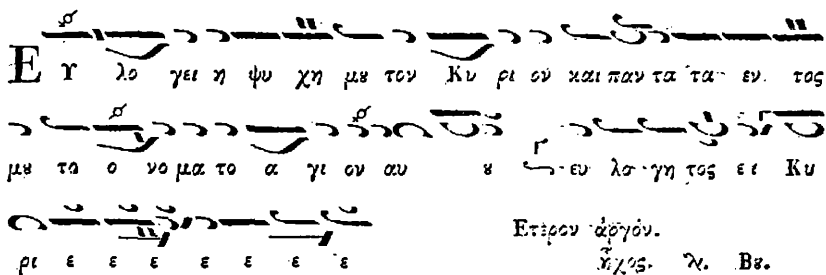 Ευ λο γει η ψυ χη μȣ τον Κυ ρι ον και παν τα τα εν τος
μȣ το ο νο μα το α γι ον αυ ȣ ευ λο γη τος ει Κυ
ρι ε ε ε ε ε ε ε
Ετερον ἀργόν.
ἦχος. λ. Βȣ.